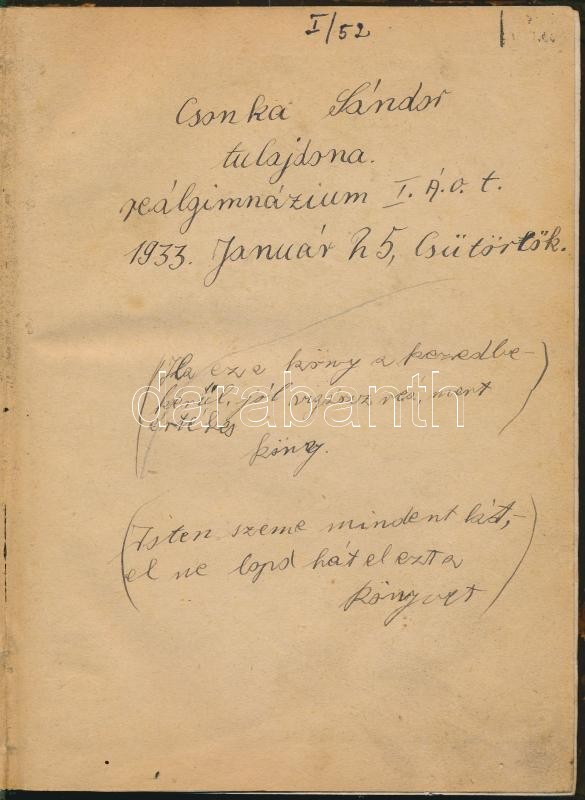 I/52
Csonka Sándor
tulajdona.
reálgimnázium I. Á. o. t.
1933. Január 25, Csütörtök.
(Ha ez a köny a kezedbe-
kerül, jól vigyázz rea, mert
értékes
köny.)
darabanth
(Isten szeme mindent lát,-
el ne lopd hát el ezt a
könyvet)